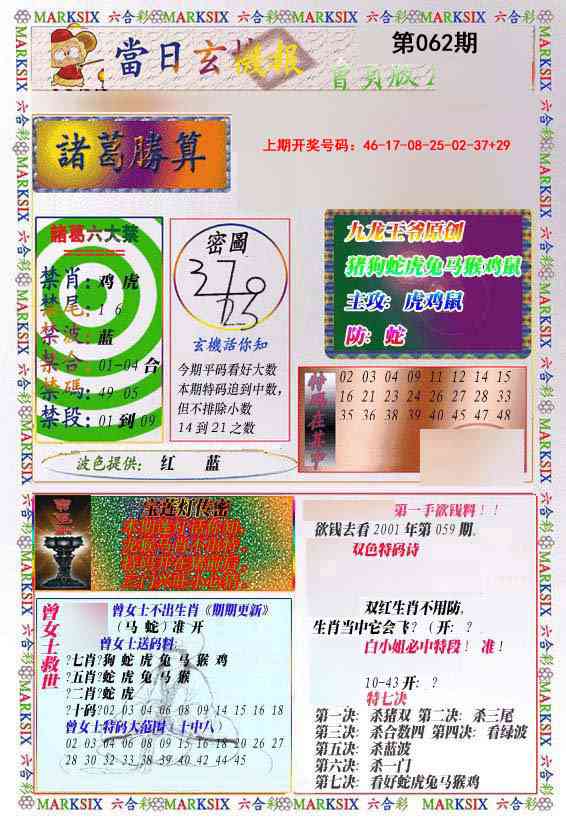 MARKSIX 六合彩 MARKSIX 六合彩 MARKSIX 六合彩 MARKSIX 六合彩
當日玄機报
第062期
會員版
諸葛勝算
上期开奖号码：46-17-08-25-02-37+29
諸葛六大禁
禁肖：鸡 虎
禁尾：1 6
禁波：蓝
禁合：01-04 合
禁碼：49 05
禁段：01 到 09
密圖
玄機活你知
今期平码看好大数
本期特码追到中数，
但不排除小数
14 到 21 之数
九龙王爷原创
猪狗蛇虎兔马猴鸡鼠
主攻：虎鸡鼠
防：蛇
特碼在其中
02 03 04 09 11 12 14 15
16 21 23 24 26 27 28 33
35 36 38 39 40 45 47 48
波色提供： 红 蓝
宝莲灯传密
曾女士救世
曾女士不出生肖《期期更新》
（马 蛇）准 开
曾女士送码料:
?七肖?狗 蛇 虎 兔 马 猴 鸡
?五肖?蛇 虎 兔 马 猴
?二肖?蛇 虎
?十码?02 03 04 06 08 09 14 15 16 18
曾女士特码大范围（十中八）
02 03 04 06 08 09 15 16 18 20 26 27
28 30 32 33 38 39 40 42 44 45
第一手欲钱料！！
欲钱去看 2001 年第 059 期。
双色特码诗
双红生肖不用防，
生肖当中它会飞？（开：？
白小姐必中特段！ 准！
10-43 开：？
特七决
第一决：杀猪双 第二决：杀三尾
第三决：杀合数四 第四决：看绿波
第五决：杀蓝波
第六决：杀一门
第七决：看好蛇虎兔马猴鸡
MARKSIX 六合彩 MARKSIX 六合彩 MARKSIX 六合彩 MARKSIX 六合彩 MARKSIX